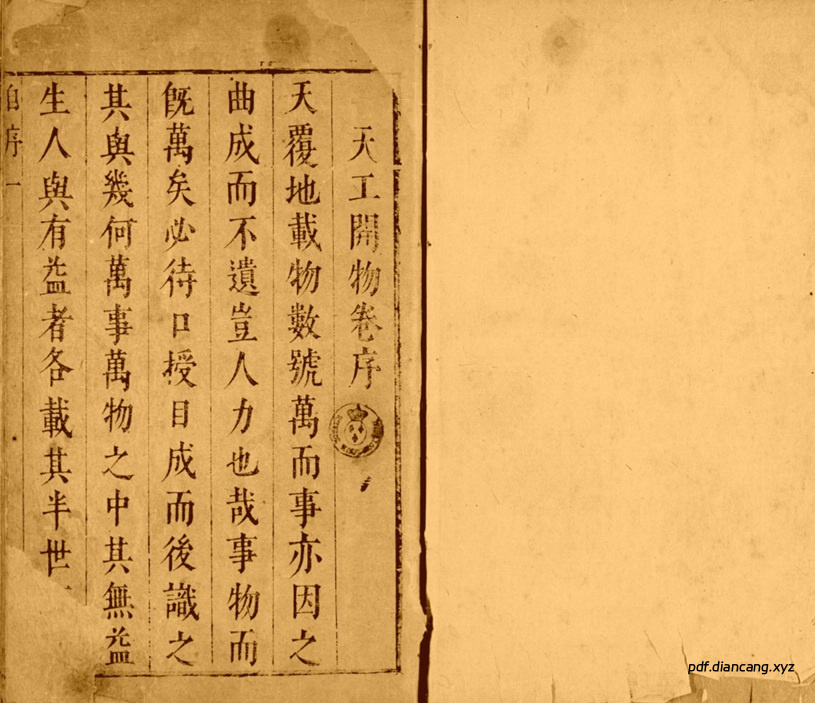 天工開物卷序
天覆地載物數號萬而事亦因之
曲成而不遺豈人力也哉事物而
旣萬矣必待口授目成而後識之
其與幾何萬事萬物之中其無益
生人與有益者各載其半世
自序一
pdf.diancang.xyz